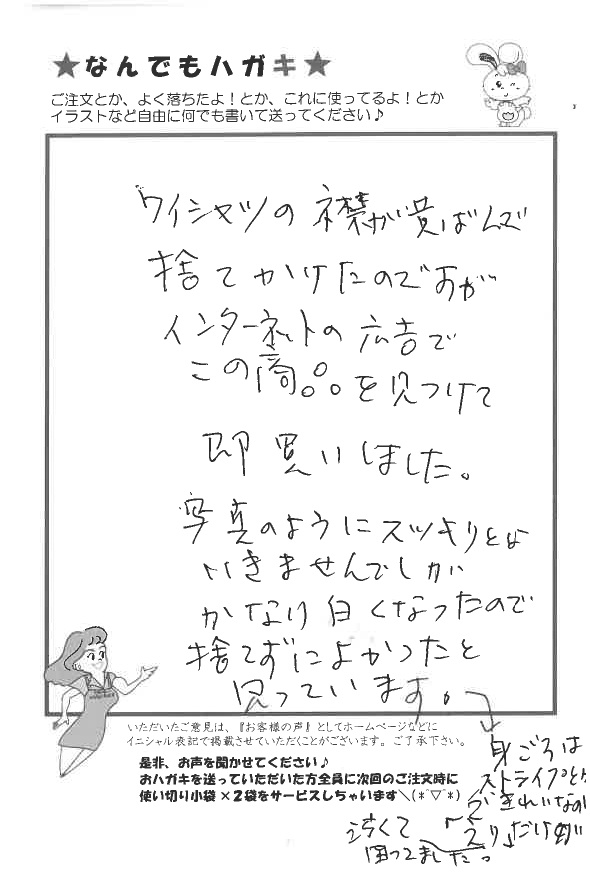 ★なんでもハガキ★
ご注文とか、よく落ちたよ！とか、これに使ってるよ！とか
イラストなど自由に何でも書いて送ってください♪
ワイシャツの襟が黄ばんで
捨てかけたのですが
インターネットの広告で
この商品を見つけて
即買いしました。
写真のようにスッキリとは
いきませんでしたが
かなり白くなったので
捨てずによかったと
思っています。
いただいたご意見は、『お客様の声』としてホームページなどに
イニシャル表記で掲載させていただくことがございます。ご了承下さい。
是非、お声を聞かせてください♪
おハガキを送っていただいた方全員に次回のご注文時に
使い切り小袋×2袋をサービスしちゃいます＼(*´▽`*)
身ごろは
ストライプとか
きれいなの
「えり」だけが
困ってました。